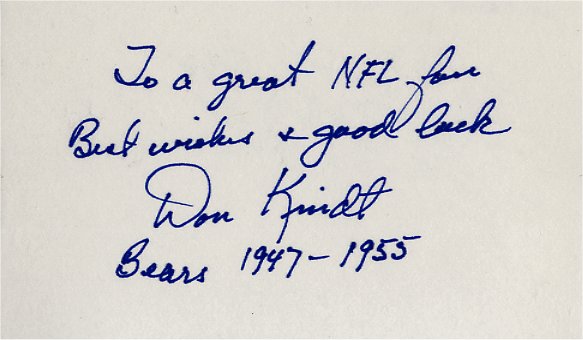 To a great NFL fan
Best wishes & good luck
Don Kindt
Bears 1947-1955